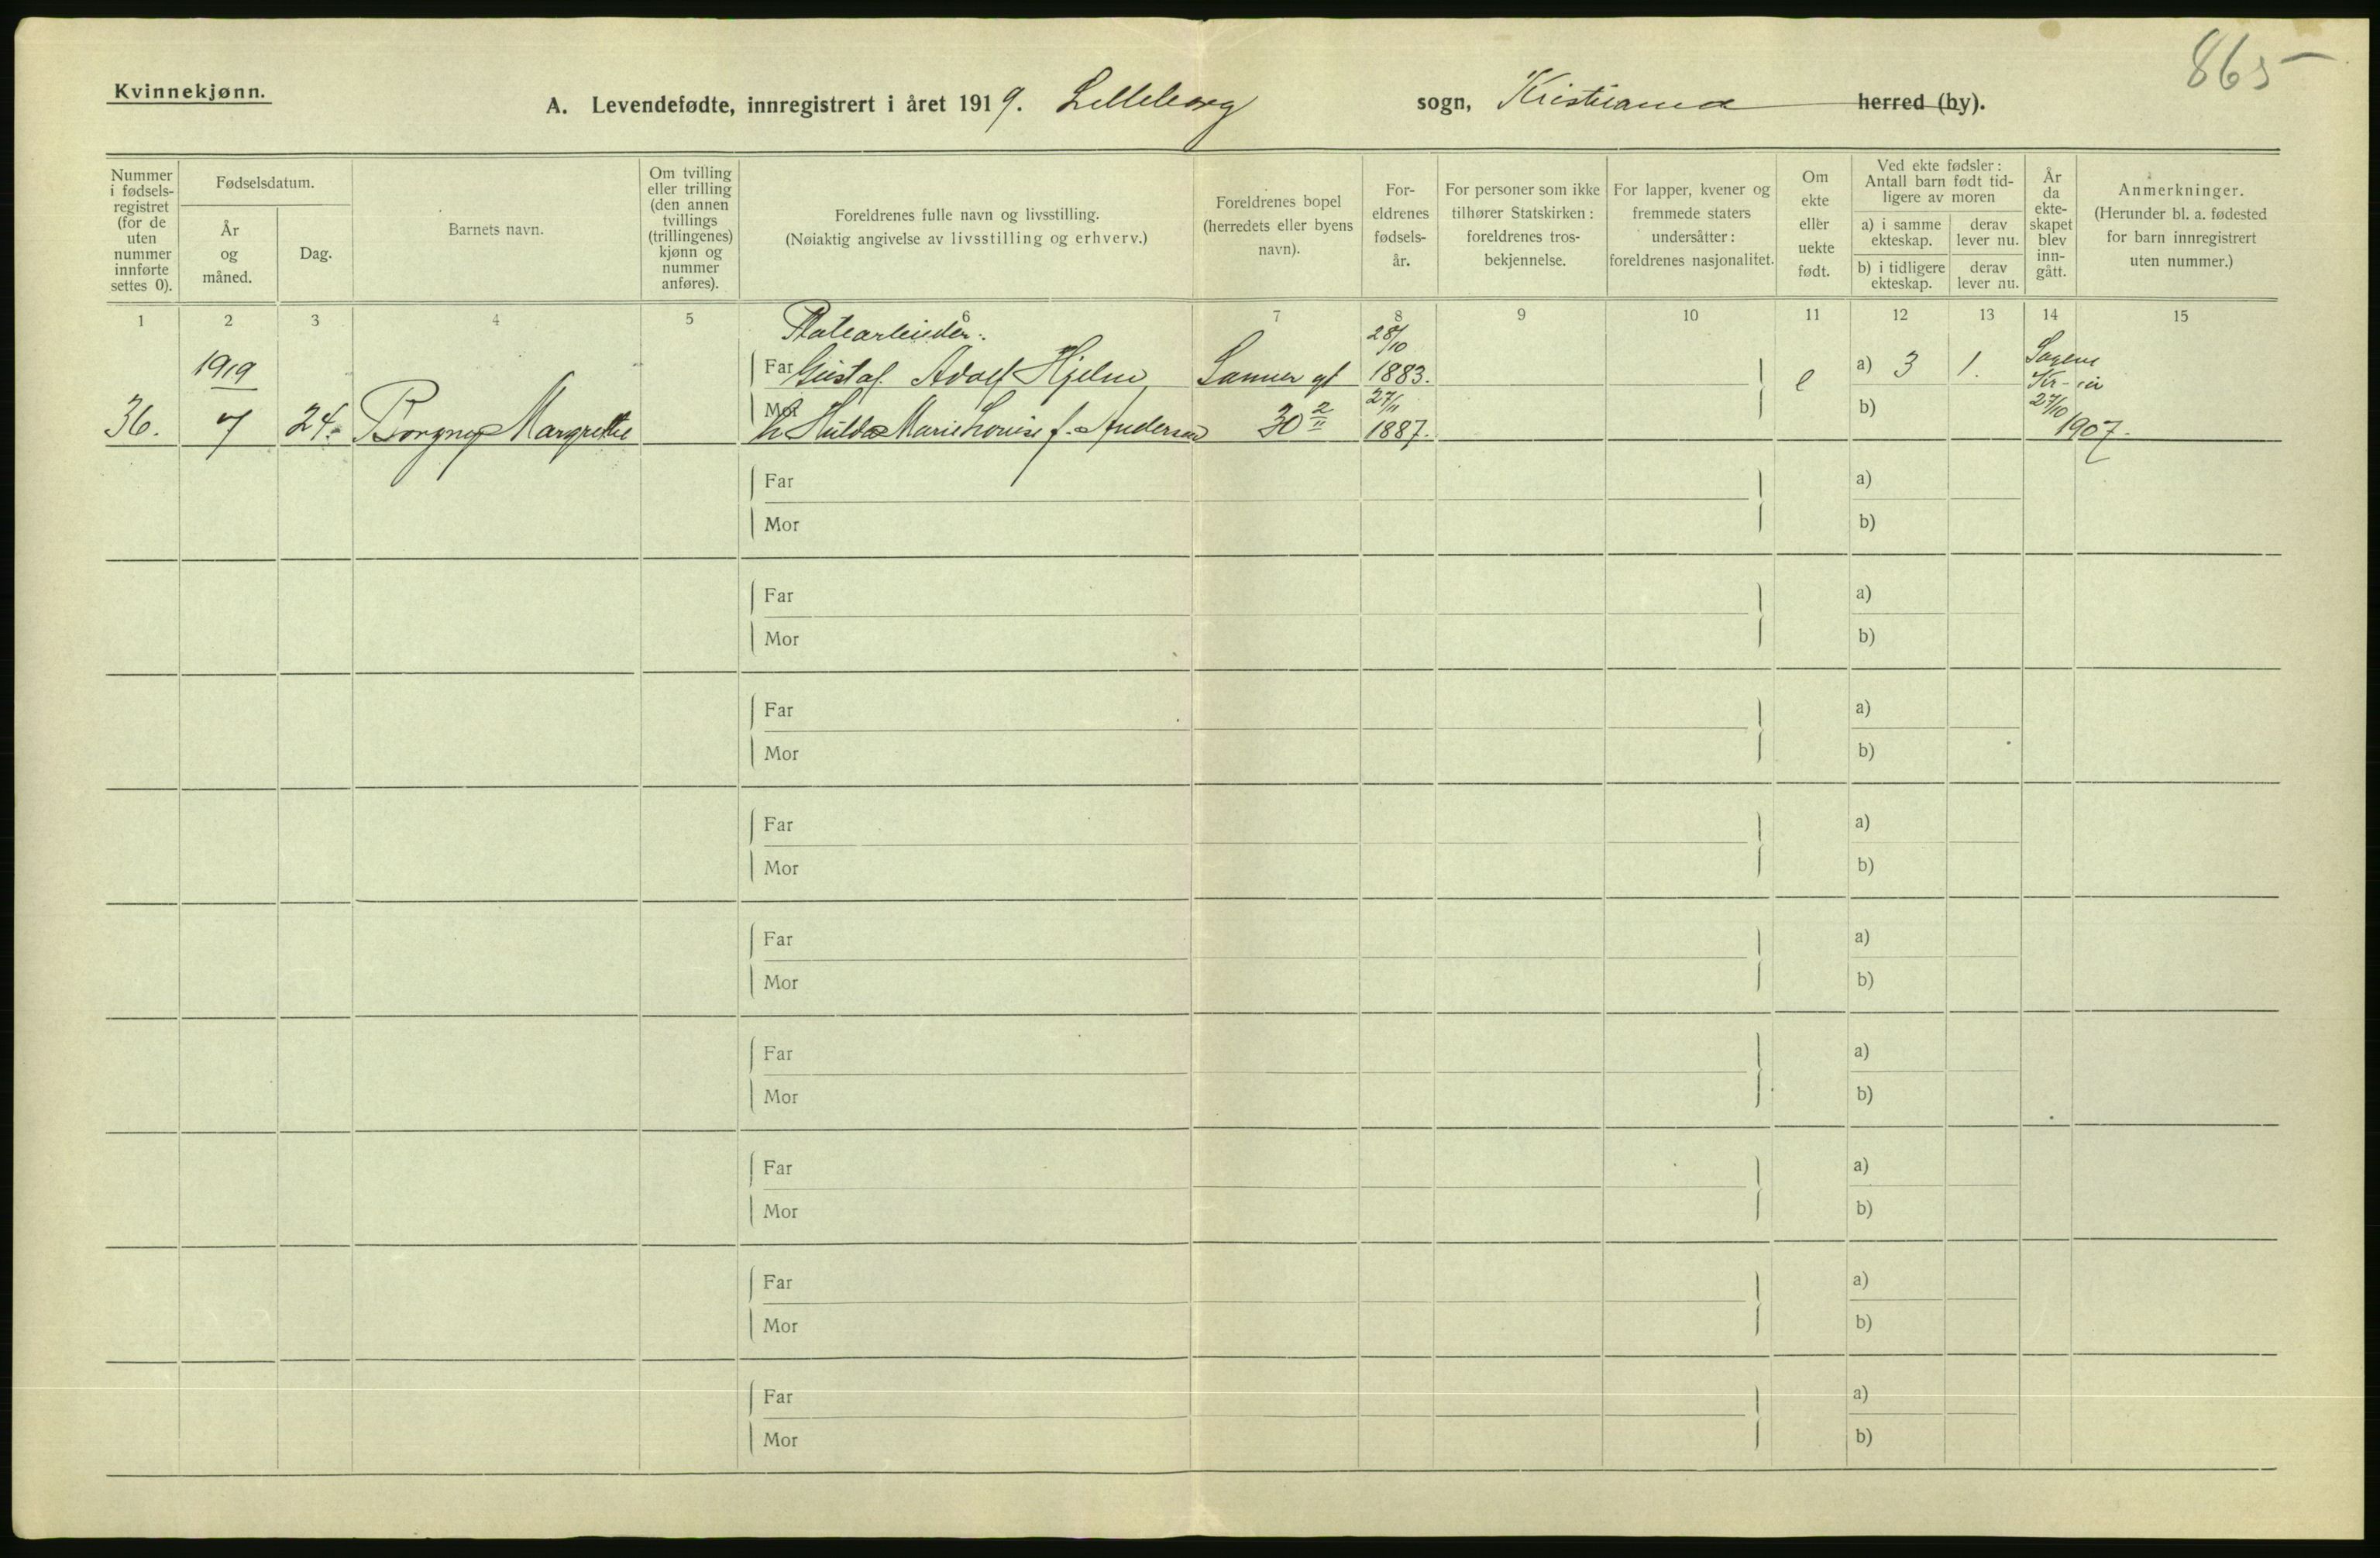 865
Kvinnekjønn.
A. Levendefødte, innregistrert i året 1919. Lilleborg sogn, Kristiania herred (by).
Nummer i fødsels-registret (for de uten nummer innførte settes 0).
Fødselsdatum.
År og måned.
Dag.
Barnets navn.
Om tvilling eller trilling (den annen tvillings (trillingenes) kjønn og nummer anføres).
Foreldrenes fulle navn og livsstilling.
(Nøiaktig angivelse av livsstilling og erhverv.)
Foreldrenes bopel (herredets eller byens navn).
For-eldrenes fødsels-år.
For personer som ikke tilhører Statskirken: foreldrenes tros-bekjennelse.
For lapper, kvener og fremmede staters undersåtter: foreldrenes nasjonalitet.
Om ekte eller uekte født.
Ved ekte fødsler: Antall barn født tid-ligere av moren
a) i samme ekteskap.
derav lever nu.
b) i tidligere ekteskap.
derav lever nu.
År da ekte-skapet blev inn-gått.
Anmerkninger.
(Herunder bl. a. fødested for barn innregistrert uten nummer.)
1 2 3 4 5 6 7 8 9 10 11 12 13 14 15
Platearbeider.
28/10
1919 Far Gustaf Adolf Hjelm, Sanner gt 1883. e a) 3 1. Sagene Kr-ia
27/11
36. 7 24. Borgny Margrethe Mor h Hulda Marie Louise f. Andersen 30 2/11 1887. b) 27/10 1907.
Far a)
Mor b)
Far a)
Mor b)
Far a)
Mor b)
Far a)
Mor b)
Far a)
Mor b)
Far a)
Mor b)
Far a)
Mor b)
Far a)
Mor b)
Far a)
Mor b)